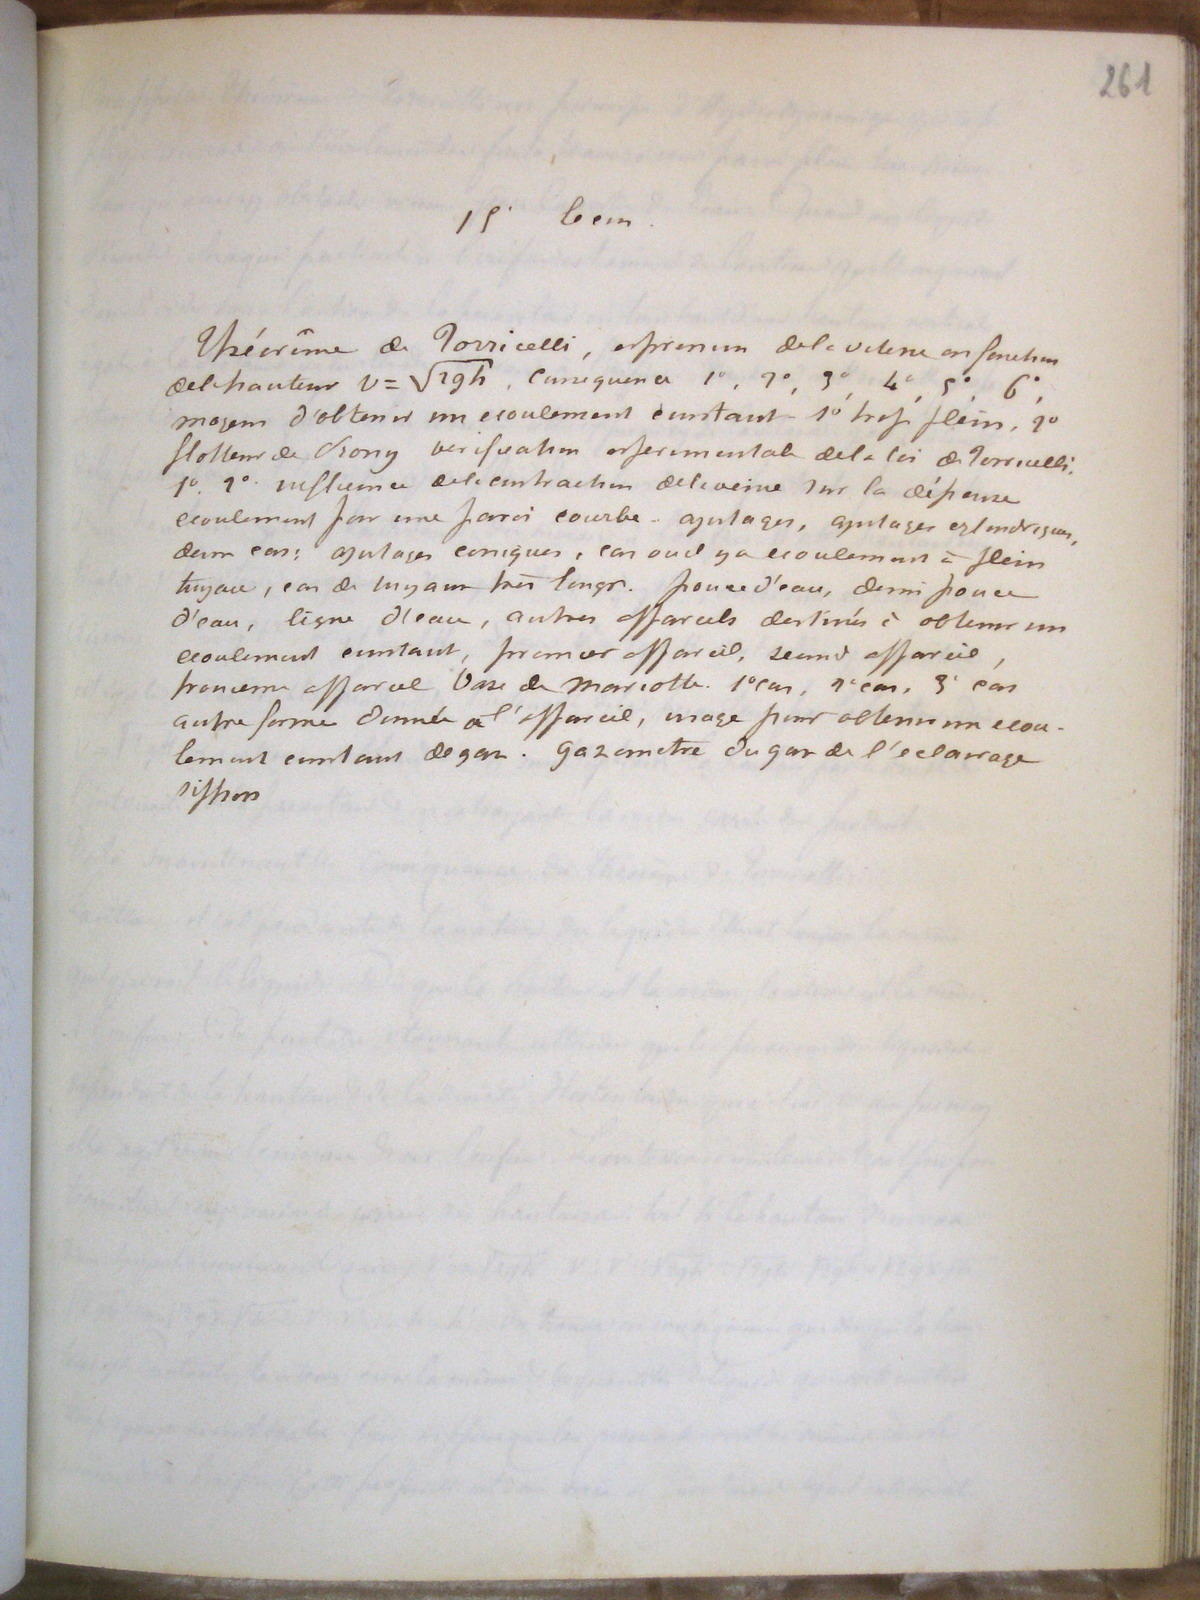 261
15e Leçon.
Théorême de Torricelli, expression de la vitesse en fonction
de la hauteur V = √2gh, consequences 1°, 2°, 3°, 4°, 5°, 6°,
moyens d'obtenir un ecoulement constant 1° trop plein, 2°
flotteur de Prony verification experimentale de la loi de Torricelli.
1°. 2°. influence de la contraction de la veine sur la dépense
ecoulement par une paroi courbe. ajutages, ajutages cylindriques,
deux cas; ajutages coniques, cas ou il y a ecoulement à plein
tuyau, cas de tuyaux très longs. pouce d'eau, demi pouce
d'eau, ligne d'eau, autres appareils destinés à obtenir un
ecoulement constant, premier appareil, second appareil,
troisieme appareil Vase de Mariotte. 1° cas, 2e cas, 3e cas
autre forme donnée à l'appareil, usage pour obtenir un ecou-
lement constant de gaz. Gazometre du gaz de l'eclairage
siphon